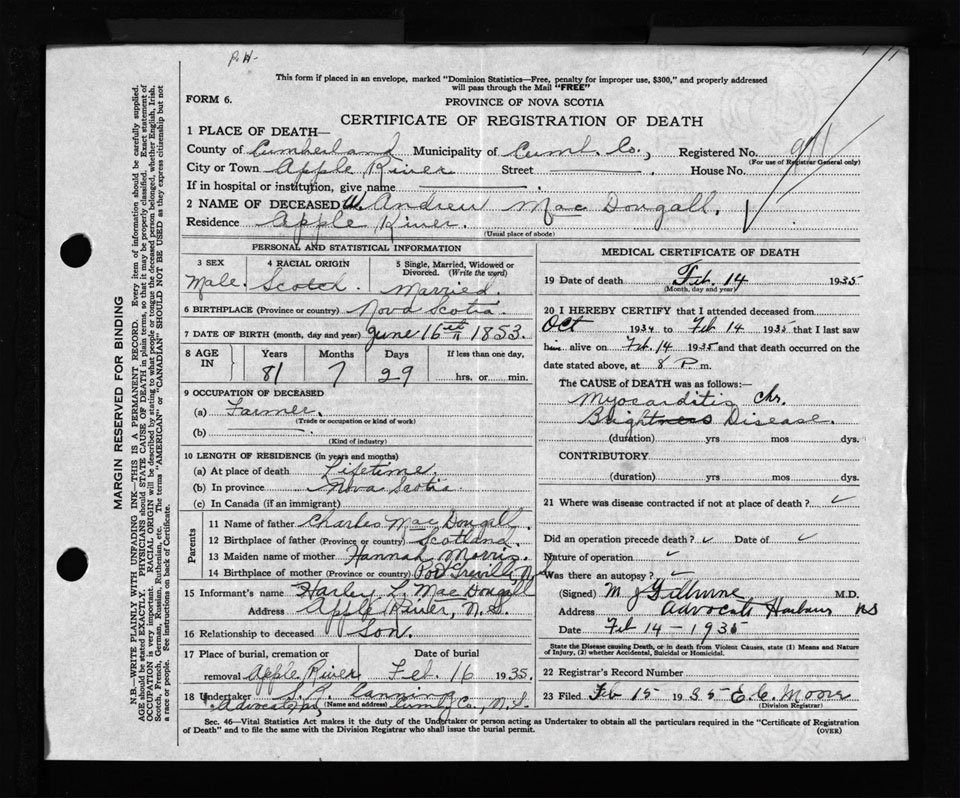 R.H.
This form if placed in an envelope, marked "Dominion Statistics—Free, penalty for improper use, $300," and properly addressed
will pass through the Mail "FREE"
FORM 6.
PROVINCE OF NOVA SCOTIA
CERTIFICATE OF REGISTRATION OF DEATH
1 PLACE OF DEATH—
County of Cumberland Municipality of Cumb. Co., Registered No.
(For use of Registrar General only)
City or Town Apple River Street House No.
If in hospital or institution, give name
2 NAME OF DECEASED W. Andrew Mac Dougall,
Residence Apple River.
(Usual place of abode)
PERSONAL AND STATISTICAL INFORMATION
3 SEX 4 RACIAL ORIGIN 5 Single, Married, Widowed or
Divorced. (Write the word)
Male. Scotch. Married.
6 BIRTHPLACE (Province or country) Nova Scotia.
7 DATE OF BIRTH (month, day and year) June 16th 1853.
8 AGE IN Years Months Days If less than one day,
81 7 29 hrs. or min.
9 OCCUPATION OF DECEASED
(a) Farmer.
(Trade or occupation or kind of work)
(b)
(Kind of industry)
10 LENGTH OF RESIDENCE (in years and months)
(a) At place of death Lifetime.
(b) In province Nova Scotia.
(c) In Canada (if an immigrant)
Parents
11 Name of father Charles Mac Dougall.
12 Birthplace of father (Province or country) Scotland.
13 Maiden name of mother Hannah Morris.
14 Birthplace of mother (Province or country) Port Greville N.S
15 Informant's name Harley L. Mac Dougall
Address Apple River, N.S.
16 Relationship to deceased Son.
17 Place of burial, cremation or Date of burial
removal Apple River Feb. 16 1935.
18 Undertaker Canning
(Name and address) Advocate, Cumb. Co., N.S.
MEDICAL CERTIFICATE OF DEATH
19 Date of death Feb. 14 1935
(Month, day and year)
20 I HEREBY CERTIFY that I attended deceased from
Oct 1934 to Feb 14 1935 that I last saw
him alive on Feb 14 1935 and that death occurred on the
date stated above, at 8 P. m.
The CAUSE of DEATH was as follows:—
Myocarditis Chr.
Brightness Disease.
(duration) yrs mos dys.
CONTRIBUTORY
(duration) yrs mos dys.
21 Where was disease contracted if not at place of death? ✓
Did an operation precede death? ✓ Date of ✓
Nature of operation ✓
Was there an autopsy? ✓
(Signed) M. J. M.D.
Address Advocate Harbour NS
Date Feb 14-1935
State the Disease causing Death, or in death from Violent Causes, state (1) Means and Nature
of Injury, (2) whether Accidental, Suicidal or Homicidal.
22 Registrar's Record Number
23 Filed Feb 15 1935 E.C. Moore
(Division Registrar)
Sec. 46—Vital Statistics Act makes it the duty of the Undertaker or person acting as Undertaker to obtain all the particulars required in the "Certificate of Registration
of Death" and to file the same with the Division Registrar who shall issue the burial permit.
(OVER)
MARGIN RESERVED FOR BINDING
N.B.—WRITE PLAINLY WITH UNFADING INK—THIS IS A PERMANENT RECORD. Every item of information should be carefully supplied.
AGE should be stated EXACTLY. PHYSICIANS should STATE CAUSE OF DEATH in plain terms, so that it may be properly classified. Exact statement of
OCCUPATION is very important. RACIAL ORIGIN will be described by stating to what people or tongue the deceased person belonged, whether English, Irish,
Scotch, French, German, Russian, Ruthenian, etc. The terms "AMERICAN" or "CANADIAN" SHOULD NOT BE USED as they express citizenship but not
a race or people. See instructions on back of Certificate.